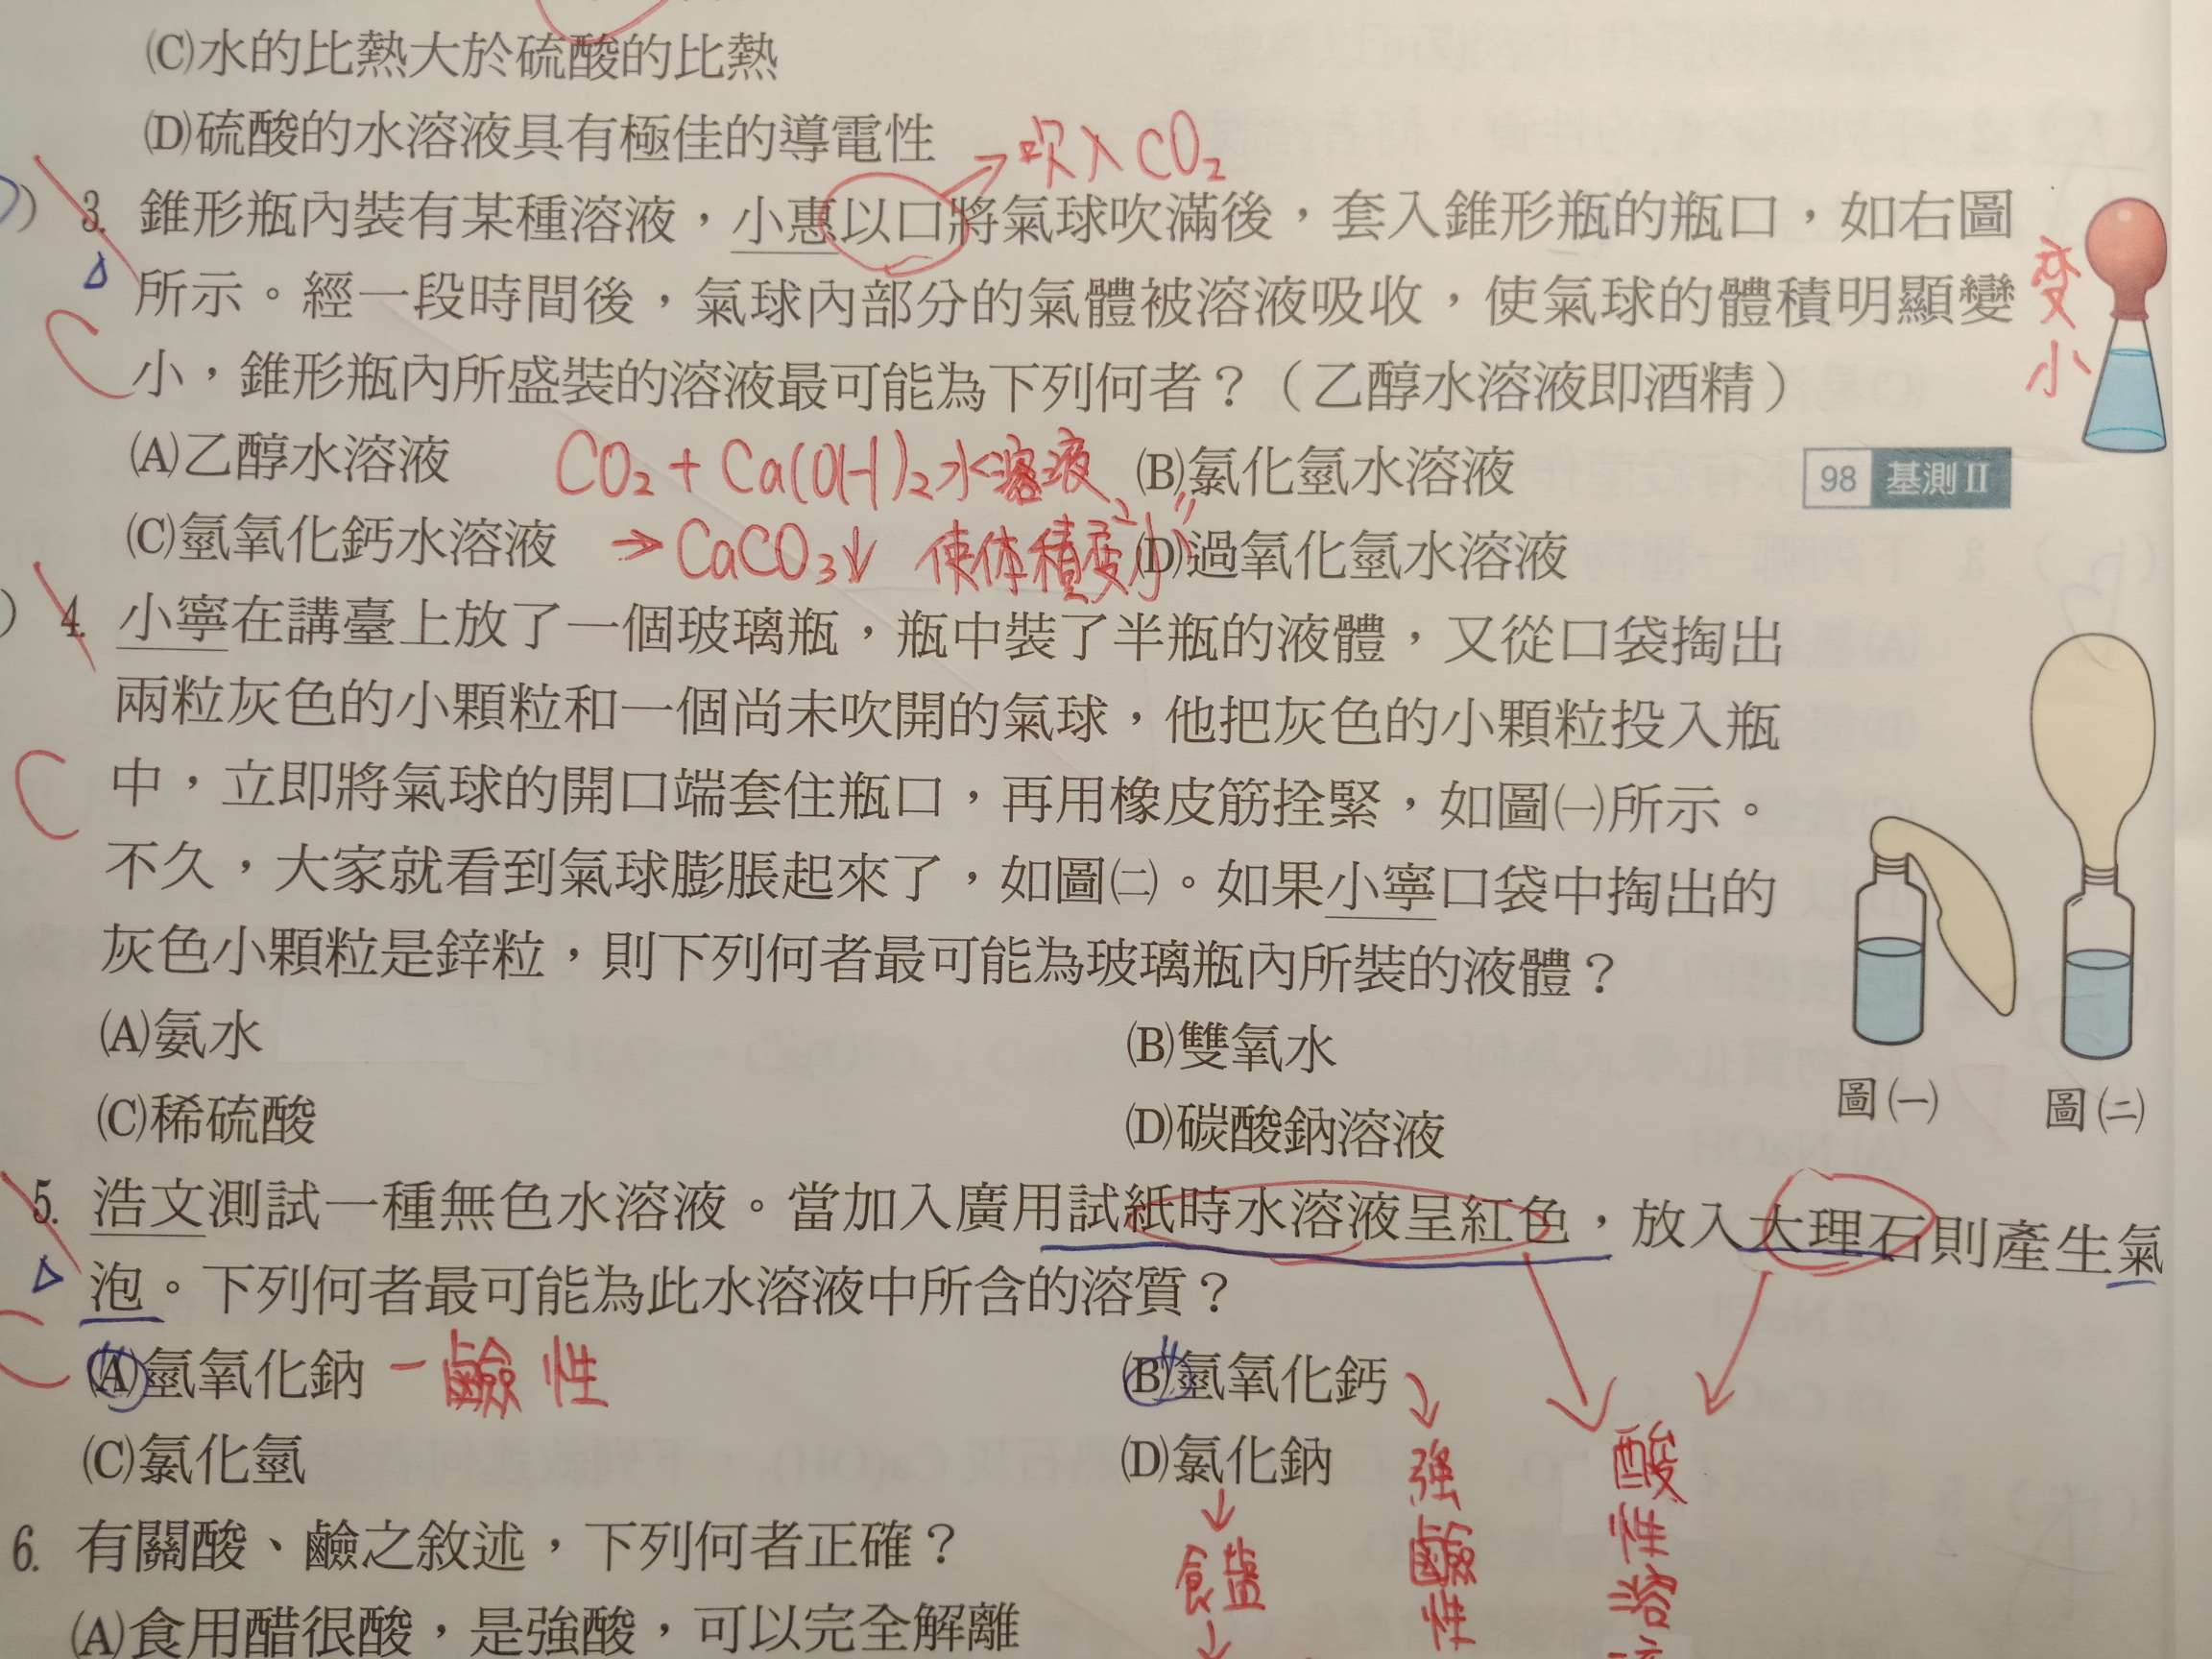 (C)水的比熱大於硫酸的比熱
(D)硫酸的水溶液具有極佳的導電性
吹入CO₂
3. 錐形瓶內裝有某種溶液，小惠以口將氣球吹滿後，套入錐形瓶的瓶口，如右圖
所示。經一段時間後，氣球內部分的氣體被溶液吸收，使氣球的體積明顯變
小，錐形瓶內所盛裝的溶液最可能為下列何者？（乙醇水溶液即酒精）
变小
C
(A)乙醇水溶液
CO₂ + Ca(OH)₂水溶液
(B)氯化氫水溶液
98 基測II
(C)氫氧化鈣水溶液
→ CaCO₃↓ 使体積变小
(D)過氧化氫水溶液
4. 小寧在講臺上放了一個玻璃瓶，瓶中裝了半瓶的液體，又從口袋掏出
兩粒灰色的小顆粒和一個尚未吹開的氣球，他把灰色的小顆粒投入瓶
中，立即將氣球的開口端套住瓶口，再用橡皮筋拴緊，如圖㈠所示。
不久，大家就看到氣球膨脹起來了，如圖㈡。如果小寧口袋中掏出的
灰色小顆粒是鋅粒，則下列何者最可能為玻璃瓶內所裝的液體？
C
(A)氨水
(B)雙氧水
(C)稀硫酸
(D)碳酸鈉溶液
圖㈠
圖㈡
5. 浩文測試一種無色水溶液。當加入廣用試紙時水溶液呈紅色，放入大理石則產生氣
泡。下列何者最可能為此水溶液中所含的溶質？
(A)氫氧化鈉
－鹼性
(B)氫氧化鈣
強鹼性
酸性溶
(C)氯化氫
(D)氯化鈉
食盐
6. 有關酸、鹼之敘述，下列何者正確？
(A)食用醋很酸，是強酸，可以完全解離